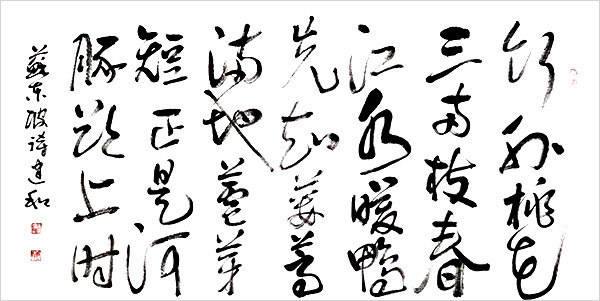 竹外桃花
三两枝春
江水暖鸭
先知蒌蒿
满地芦芽
短正是河
豚欲上时
蘇东坡詩建和